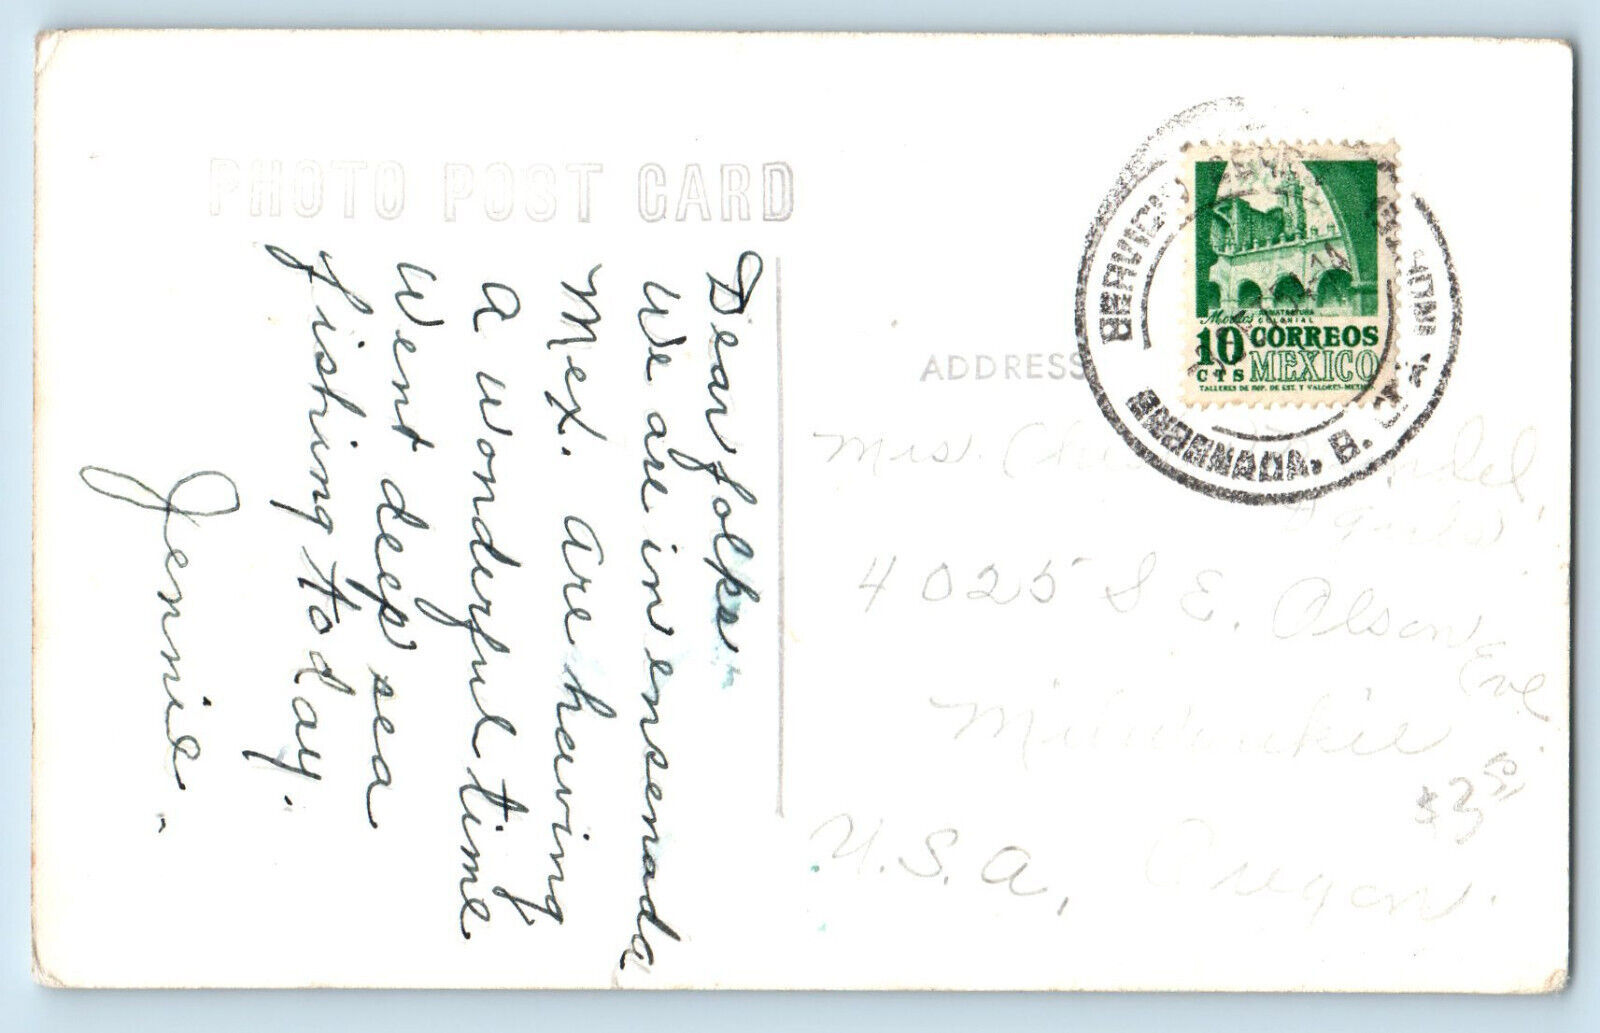 PHOTO POST CARD
Dear folks
We are in ensenada
Mex. are having
a wonderful time
Went deep sea
fishing today.
Jennie.
Morelos ARQUITECTURA COLONIAL
10 CTS CORREOS MEXICO
TALLERES DE IMP. DE EST. Y VALORES-MEXICO
ENSENADA, B. CFA.
ADDRESS
Mrs.
4025 S E. Olson
Eve.
Milwaukie
U.S.A, Oregon.
$3.50